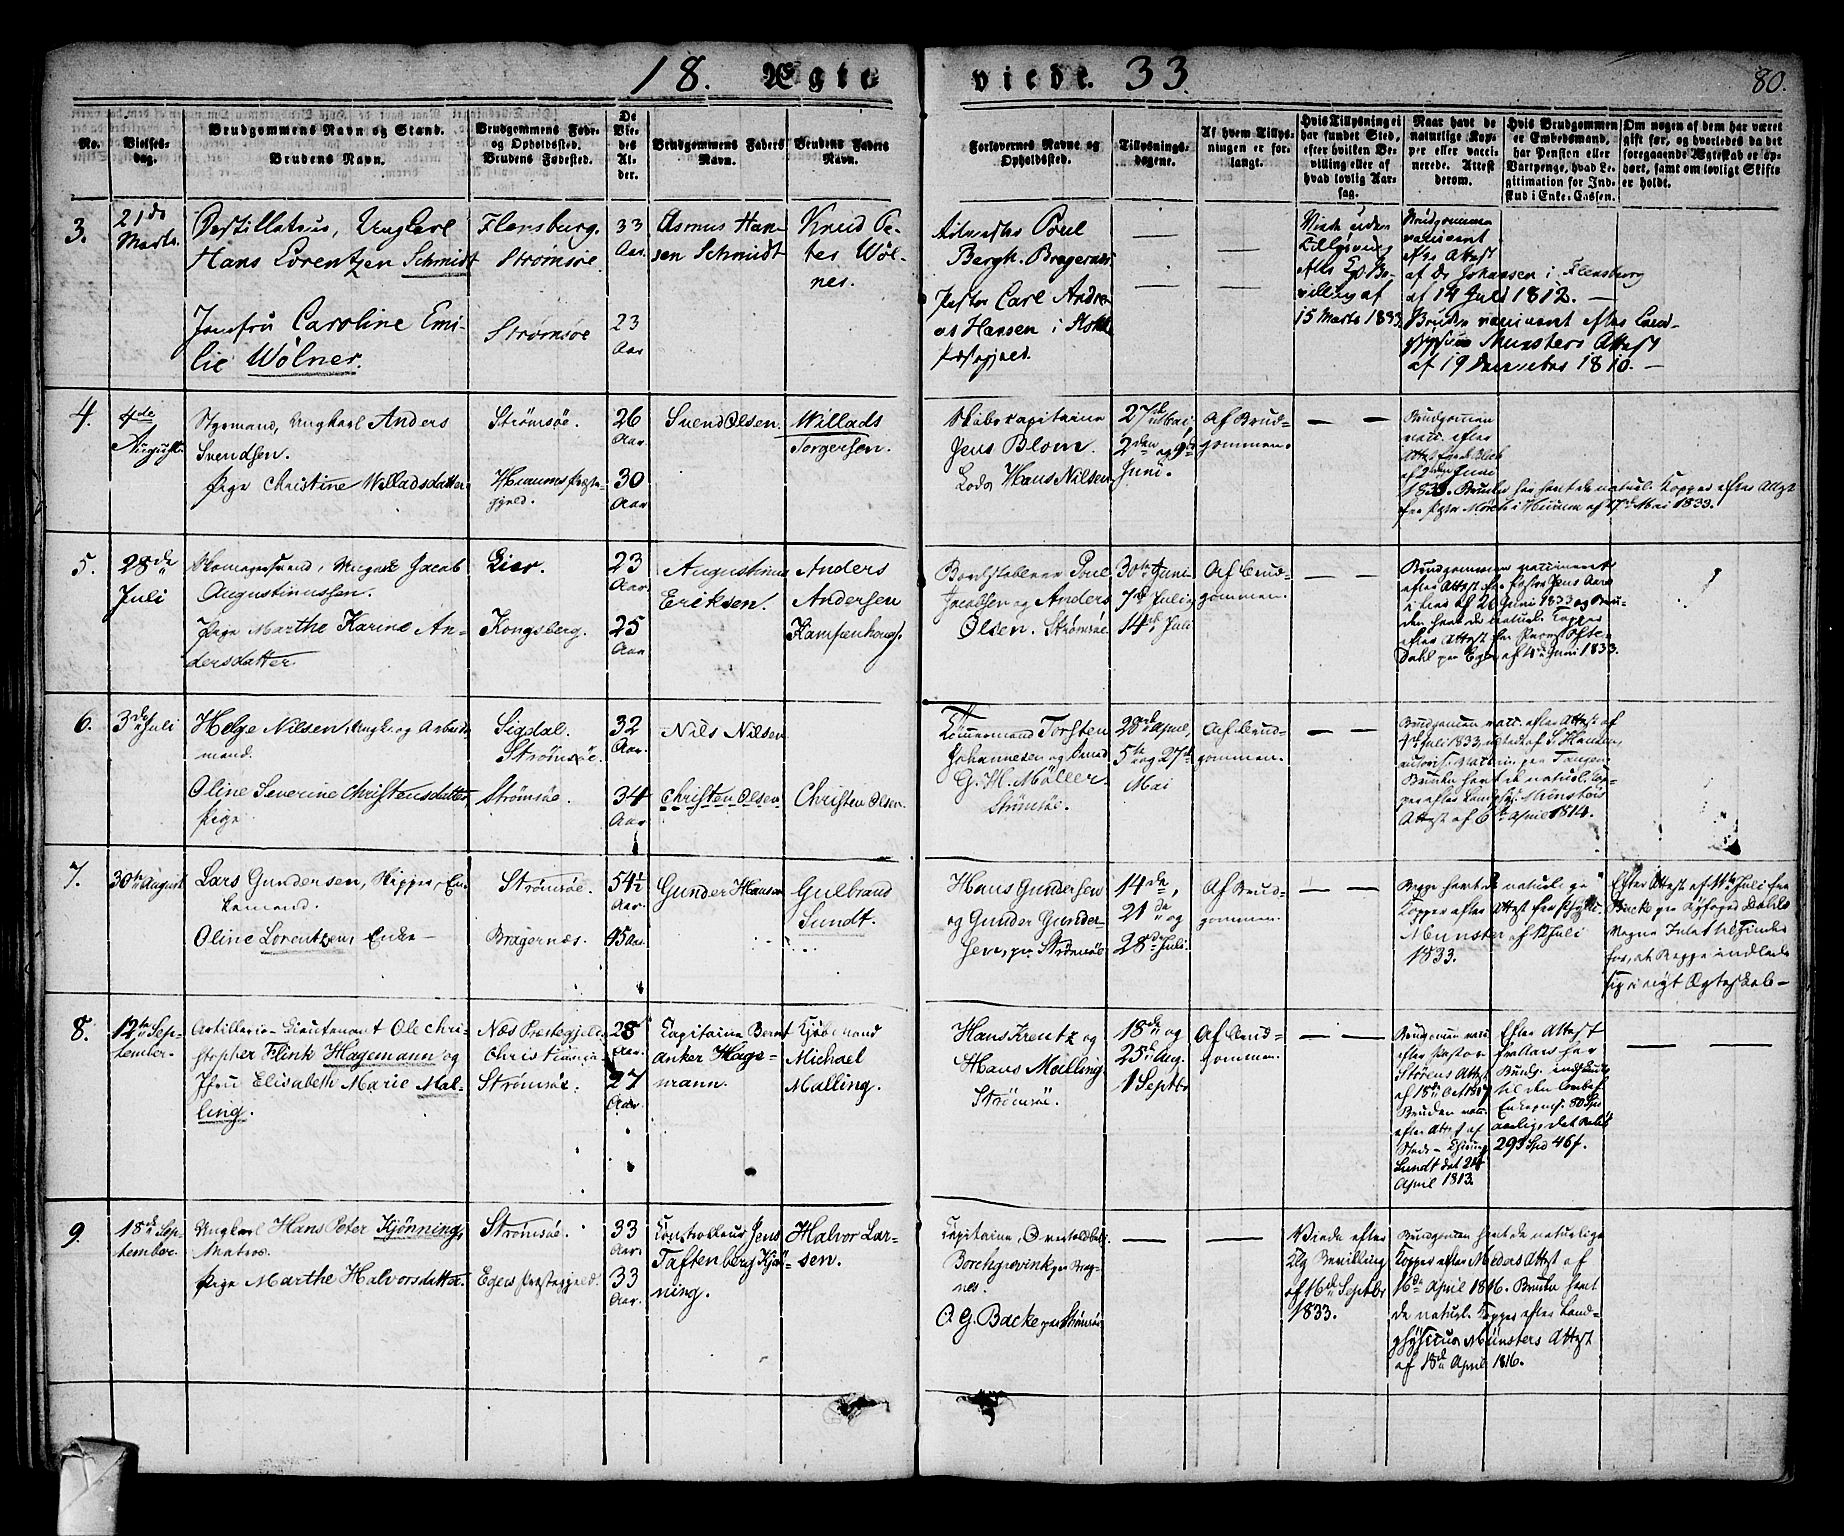 18. Ægte viede. 33. 80.
No.
Vielses-
dag.
Brudgommens Navn og Stand.
Brudens Navn.
Brudgommens Føde-
og Opholdssted.
Brudens Fødested.
De
Vie-
des
Al-
der.
Brudgommens Faders
Navn.
Brudens Faders
Navn.
Forlovernes Navne og
Opholdssted.
Tillysnings-
dagene.
Af hvem Tillys-
ningen er for-
langt.
Hvis Tillysning ei
har fundet Sted,
efter hvilken Be-
villing eller af
hvad lovlig Aar-
sag.
Naar havt de
naturlige Kop-
per eller vacci-
nerede. Attest
derom.
Hvis Brudgommen
er Embedsmand,
har Pension eller
Vartpenge, hvad Le-
gitimation for Ind-
skud i Enke-Cassen.
Om nogen af dem har været
gift før, og hvorledes da det
foregaaende Ægteskab er op-
hørt, samt om lovligt Skifte
er holdt.
3.
21de
Marts.
Destillateur, Ungkarl
Hans Lorentzen Schmidt
Jomfru Caroline Emi-
lie Wölner.
Flensburg.
Strømsøe.
Strømsøe
33
Aar.
23
Aar
Asmus Han-
sen Schmidt
Knud Pe-
ter Wöl-
ner.
Poul
Bergh. Bragernæs
Pastor Carl Andre-
as Hansen i
Præstegjeld.
— —
— —
Viede uden
Tillysning
efter Kgl. Be-
villing af
15 Marts 1833.
Brudgommen
vaccineret
efter Attest
af Dr Johansen i Flensburg
af 14 Juli 1812. —
Bruden vaccineret efter Land-
physicus Munsters Attest
af 19 December 1810. —
4.
4de
August.
Styrmand, Ungkarl Anders
Svendsen.
Pige Christine Willadsdatter
Strømsøe.
Hurums Præste-
gjeld.
26
Aar.
30
Aar
Svend Olsen.
Willads
Torgersen.
Skibskapitaine
Jens Blom.
Lods Hans Nilsen
27de Mai,
2den og 9de
Juni.
Af Brud-
gommen.
— —
Brudgommen
vacc. efter
1833. Bruden har havt de naturl. Kopper efter Attest
fra Pastor Mørch i Hurum af 17de Mai 1833.
5.
28de
Juli
Skomagersvend, Ungk. Jacob
Augustinussen.
Pige Marthe Karine An-
dersdatter.
Lier.
Kongsberg.
23
Aar.
25
Aar
Augustinus
Eriksen.
Anders
Andersen
Kampenhoug.
Bordstabler Poul
Jacobsen og Anders
Olsen. Strømsøe
30te Juni
7de Juli
14de Juli
Af Brud-
gommen.
— —
Brudgommen vaccineret
efter Attest fra Pastor Jens Aars
i Lier af 26 Juni 1833 og Bru-
den havt de naturl. Kopper
efter Attest fra
Dahl paa Eger af 4de Juni 1833.
6.
3de Juli
Helge Nilsen, Ungk. og Arbeids-
mand.
Oline Severine Christensdatter
Pige
Sigdal.
Strømsøe.
Strømsøe.
32
Aar.
34
Aar.
Nils Nilsen
Christen Olsen
Christen Olsen.
Tømmermand Torsten
Johannesen og
G. H. Møller.
Strømsøe.
28de April,
5te og 27de
Mai
Af Brud-
gommen.
— —
Brudgommen vacc. efter Attest af
Juli 1833, udstedt af S. Hansen,
paa Tangen
Bruden havt de naturl. Kop-
per efter Landphys. Münsters
Attest af 6te April 1814.
7.
30te August
Lars Gundersen, Skipper, En-
kemand.
Oline Lorentzen, Enke —
Strømsøe.
Bragernæs.
54½
Aar.
45 Aar.
Gunder Hansen
Gulbrand
Sundt.
Hans Gundersen
og Gunder Gunder-
sen, paa Strømsøe
14de,
21de og
28de Juli
Af Brud-
gommen.
— —
Begge havt de naturlige
Kopper efter Attest fra Phys.
Munster af 12 Juli
1833.
Efter Attest af 11te Juli fra
Backe
Magne intet til Hinder
for, at Begge indlade
sig i nyt Ægteskab —
8.
12te Sep-
tember.
Artillerie-Lieutenant Ole Chri-
stopher Flink Hagemann og
Jfru Elisabeth Marie Mal-
ling.
Næs Præstegjeld
Christiania
Strømsøe.
28
Aar.
27
Aar.
Kapitaine Bernt
Anker Hage-
mann.
Kjøbmand
Michael
Malling.
Hans Kreutz og
Hans Malling
Strømsøe.
18de og
25de Aug.
1 Septbr
Af Brud-
gommen.
— —
Brudgommen vacc.
efter Pastor
Størens Attest
af 18de Oct 1807
Bruden vacc.
efter Attest af
Stads-Chirurg
Sundt det 24
April 1813.
Efter Attest
Brudg.
til den
Enkepens. 80 Spd
aarlig,
293 Spd 46 s.
— —
9.
18de Sep-
tember.
Ungkarl Hans Peter Kjønning,
Matros.
Pige Marthe Halvorsdatter.
Strømsøe.
Egers Præstegjeld.
33
Aar.
33
Aar.
Controlleur Jens
Taftenberg Kjøn-
ning.
Halvor Lar-
sen.
Kapitaine,
Borchgrevink paa Brag-
nes.
O. G. Backe paa Strømsøe
—
—
Viede efter
Kgl Bevilling
af 16de Septbr
1833.
Brudgommen havt de naturlige
Kopper efter Attest af
16de April 1816. Bruden havt
de naturl. Kopper efter Land-
physicus Münsters Attest
af 18de April 1816.